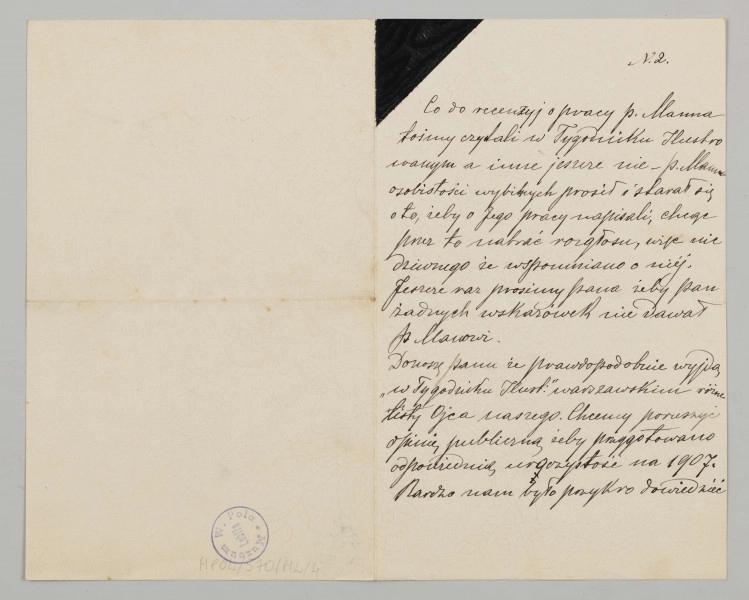 N. 2.
Co do recenzyj o pracy p. Manna
tośmy czytali w Tygodniku Ilustro
wanym a inne jeszcze nie – p. Mann
osobistości wybitnych prosił i starał się
o to, żeby o Jego pracy napisali, chcąc
przez to nabrać rozgłosu, więc nic
dziwnego że wspomniano o niéj.
Jeszcze raz prosimy pana żeby pan
żadnych wskazówek nie dawał
p. Manowi.
Donoszę panu że prawdopodobnie wyjdą
„w Tygodniku Ilust." warszawskim różne
listy Ojca naszego. Chcemy poruszyć
opinię publiczną żeby przygotowano
odpowiednią uroczystość na 1907.
Bardzo nam było przykro dowiedzieć
Muzeum Pola
HPOL/370/ML/4